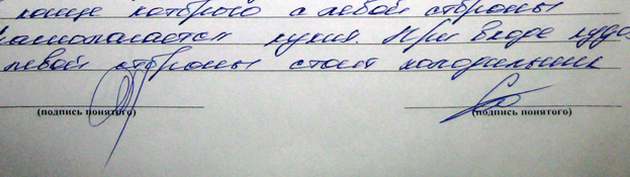 конце котрого с левой стороны
располагается кухня. При входе куда
левой стороны стоит холодильник
(подпись понятого) (подпись понятого)